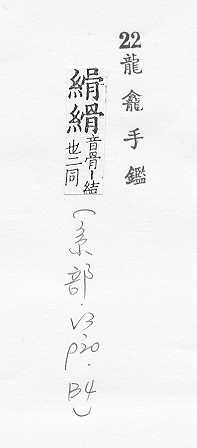 22龍龕手鑑
絹縎
音骨丨結
也二同
(糸部.V3.P20.B4)